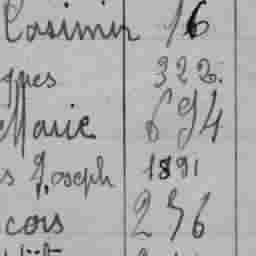 Casimir 16
ques 322.
Marie 694
s Joseph 1891
cois 256